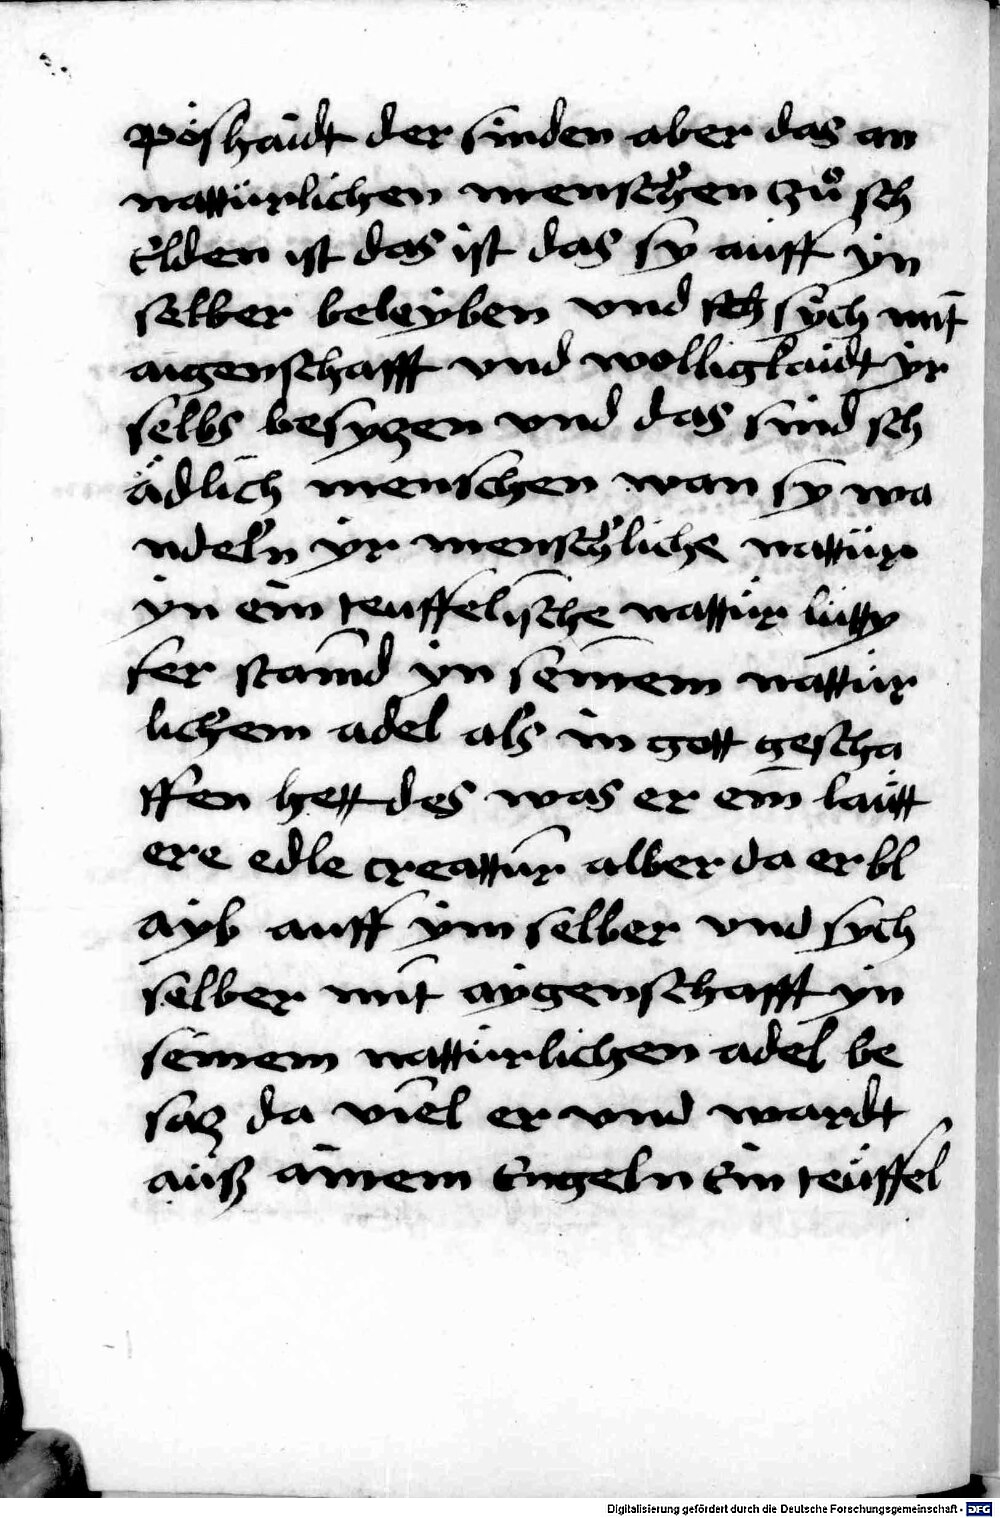 pöshaidt der sinden aber das an
nattürlichen menschen tzů sch
elden ist das ist das sy auff yn
selber beleyben vnd sych mit
aigenschafft vnd wolligkaidt yr
selbs besyczen vnd das sind sch
ädlich menschen wan sy wa
ndeln yr menschliche nattür
yn ein teuffelische nattür lutty
fer stamd yn seinem nattür
lichem adel als in gott gescha
ffen hett des was er ein lautt
ere edle creattur alber da er bl
ayb auff ym selber vnd sych
selber mit aygenschafft yn
seinem nattürlichen adel be
sasz da viel er vnd wardt
ausz ainem Engeln Ein teuffel
Digitalisierung gefördert durch die Deutsche Forschungsgemeinschaft - DFG